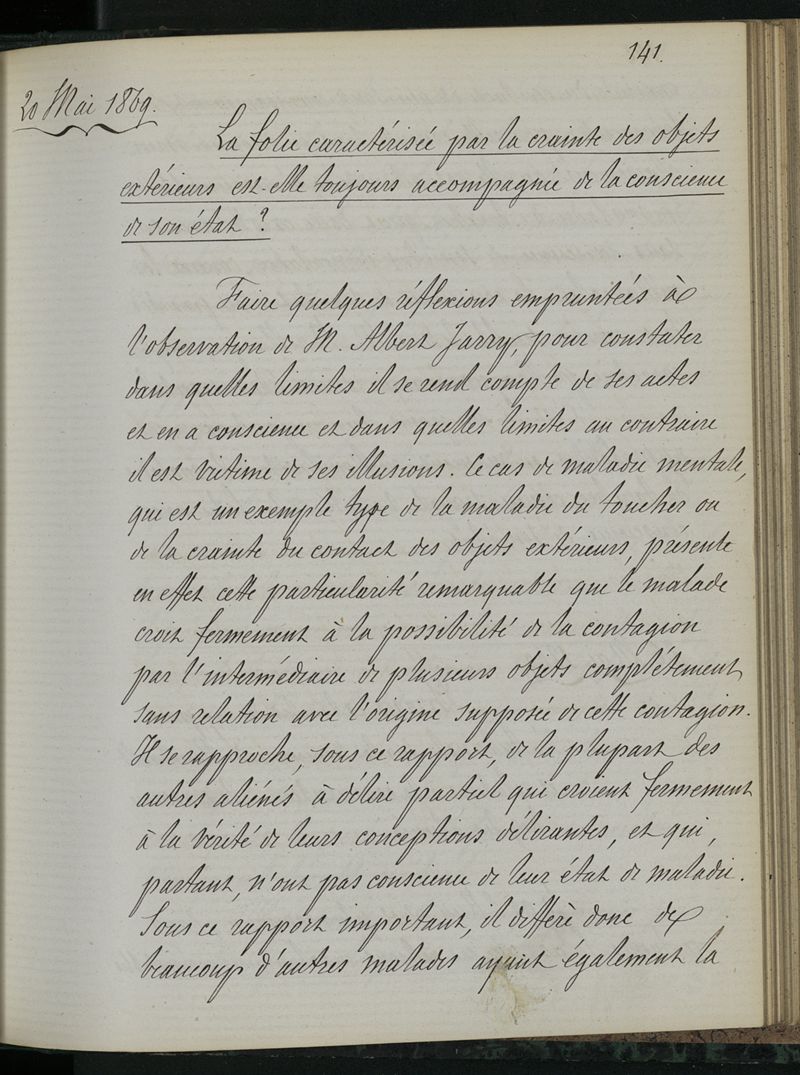 141.
20 Mai 1869.
La folie caractérisée par la crainte des objets
extérieurs est-elle toujours accompagnée de la conscience
de son état ?
Faire quelques réflexions empruntées à
l'observation de M. Albert Jarry, pour constater
dans quelles limites il se rend compte de ses actes
et en a conscience et dans quelles limites au contraire
il est victime de ses illusions. Ce cas de maladie mentale,
qui est un exemple type de la maladie du toucher ou
de la crainte du contact des objets extérieurs, présente
en effet cette particularité remarquable que le malade
croit fermement à la possibilité de la contagion
par l'intermédiaire de plusieurs objets complétement
sans relation avec l'origine supposée de cette contagion.
Il se rapproche, sous ce rapport, de la plupart des
autres aliénés à délire partiel qui croient fermement
à la vérité de leurs conceptions délirantes, et qui,
partant, n'ont pas conscience de leur état de maladie.
Sous ce rapport important, il diffère donc de
beaucoup d'autres malades ayant également la